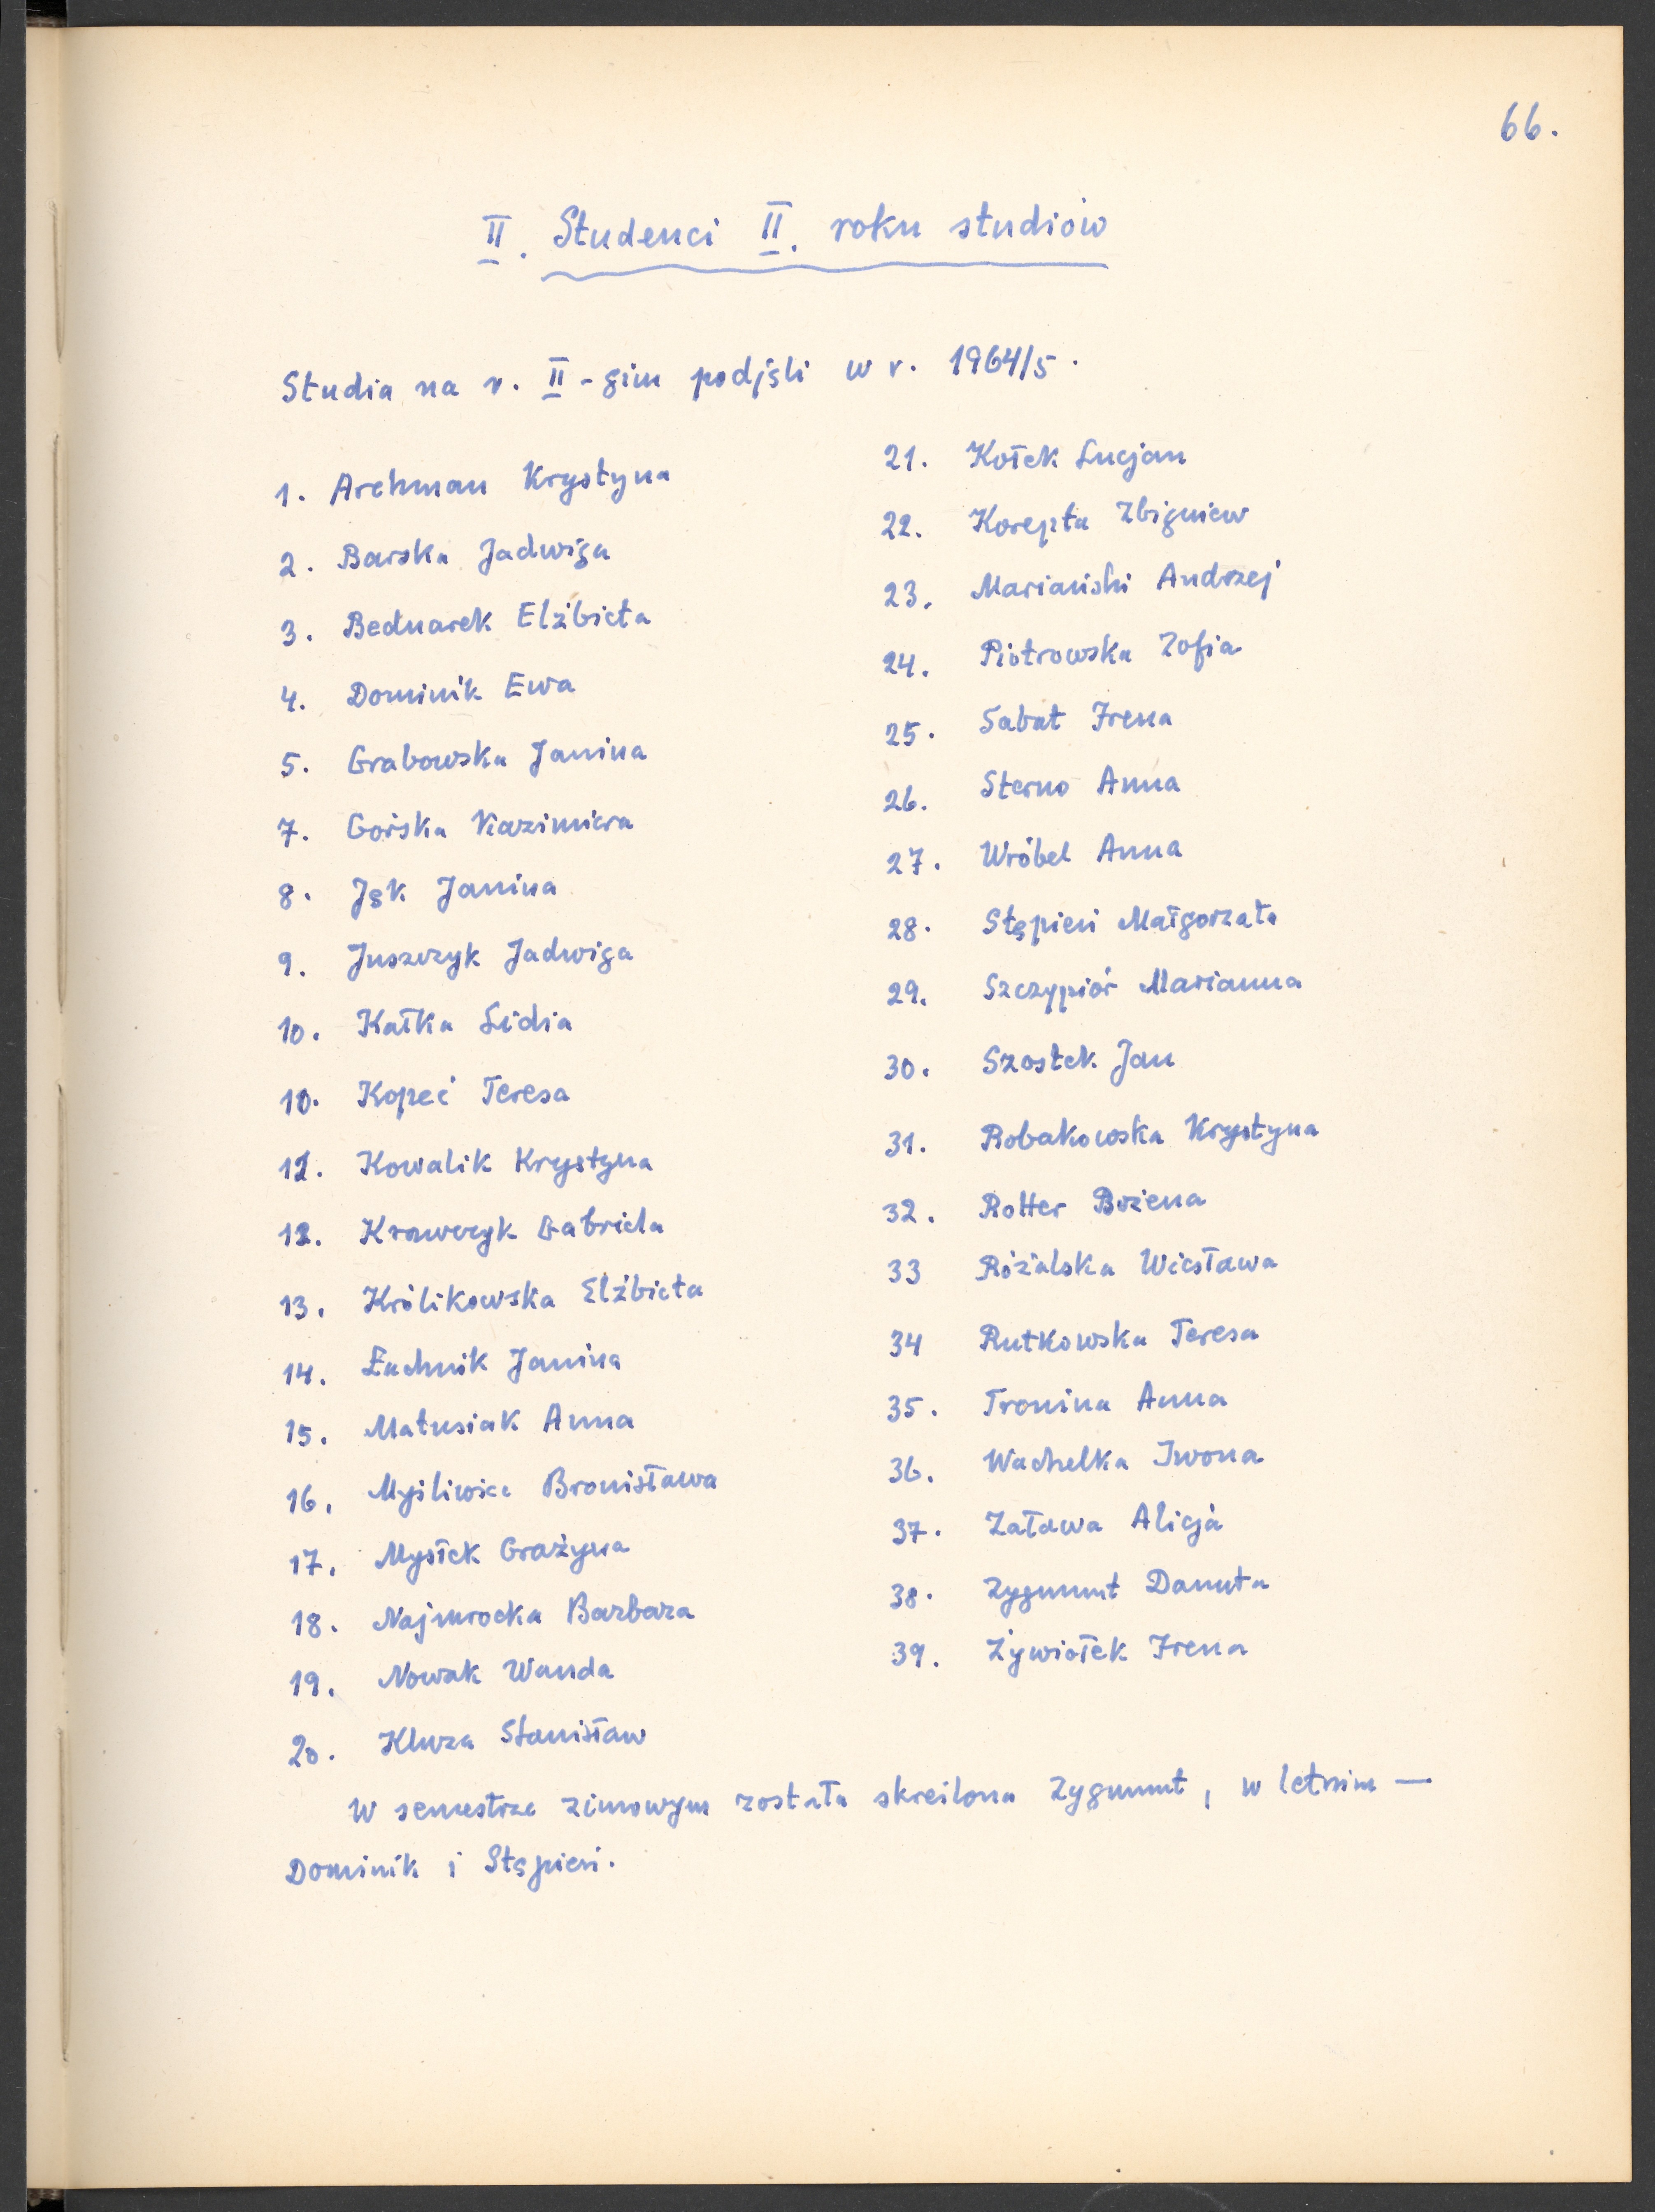 66.
II. Studenci II. roku studiów
Studia na r. II-gim podjęli w r. 1964/5.
1. Archman Krystyna
2. Barska Jadwiga
3. Bednarek Elżbieta
4. Dominik Ewa
5. Grabowska Janina
7. Górska Kazimiera
8. Jęk Janina
9. Juszczyk Jadwiga
10. Kałka Lidia
10. Kopeć Teresa
11. Kowalik Krystyna
12. Krawczyk Gabriela
13. Królikowska Elżbieta
14. Łachnik Janina
15. Matusiak Anna
16. Myśliwiec Bronisława
17. Mysłek Grażyna
18. Najmrocka Barbara
19. Nowak Wanda
20. Kluza Stanisław
21. Kołek Lucjan
22. Korepta Zbigniew
23. Mariański Andrzej
24. Piotrowska Zofia
25. Sabat Irena
26. Sterno Anna
27. Wróbel Anna
28. Stępień Małgorzata
29. Szczypiór Marianna
30. Szostek Jan
31. Robakowska Krystyna
32. Rotter Bożena
33 Różalska Wiesława
34 Rutkowska Teresa
35. Tronina Anna
36. Wachelka Iwona
37. Zaława Alicja
38. Zygmunt Danuta
39. Żywiołek Irena
W semestrze zimowym została skreślona Zygmunt, w letnim —
Dominik i Stępień.